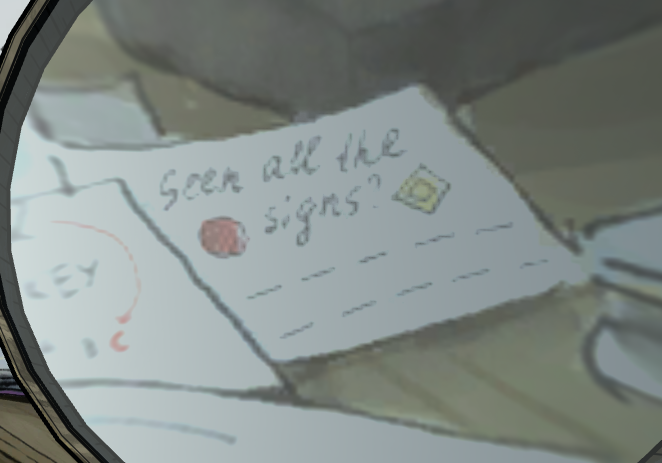 Seen all the
signs?
EY